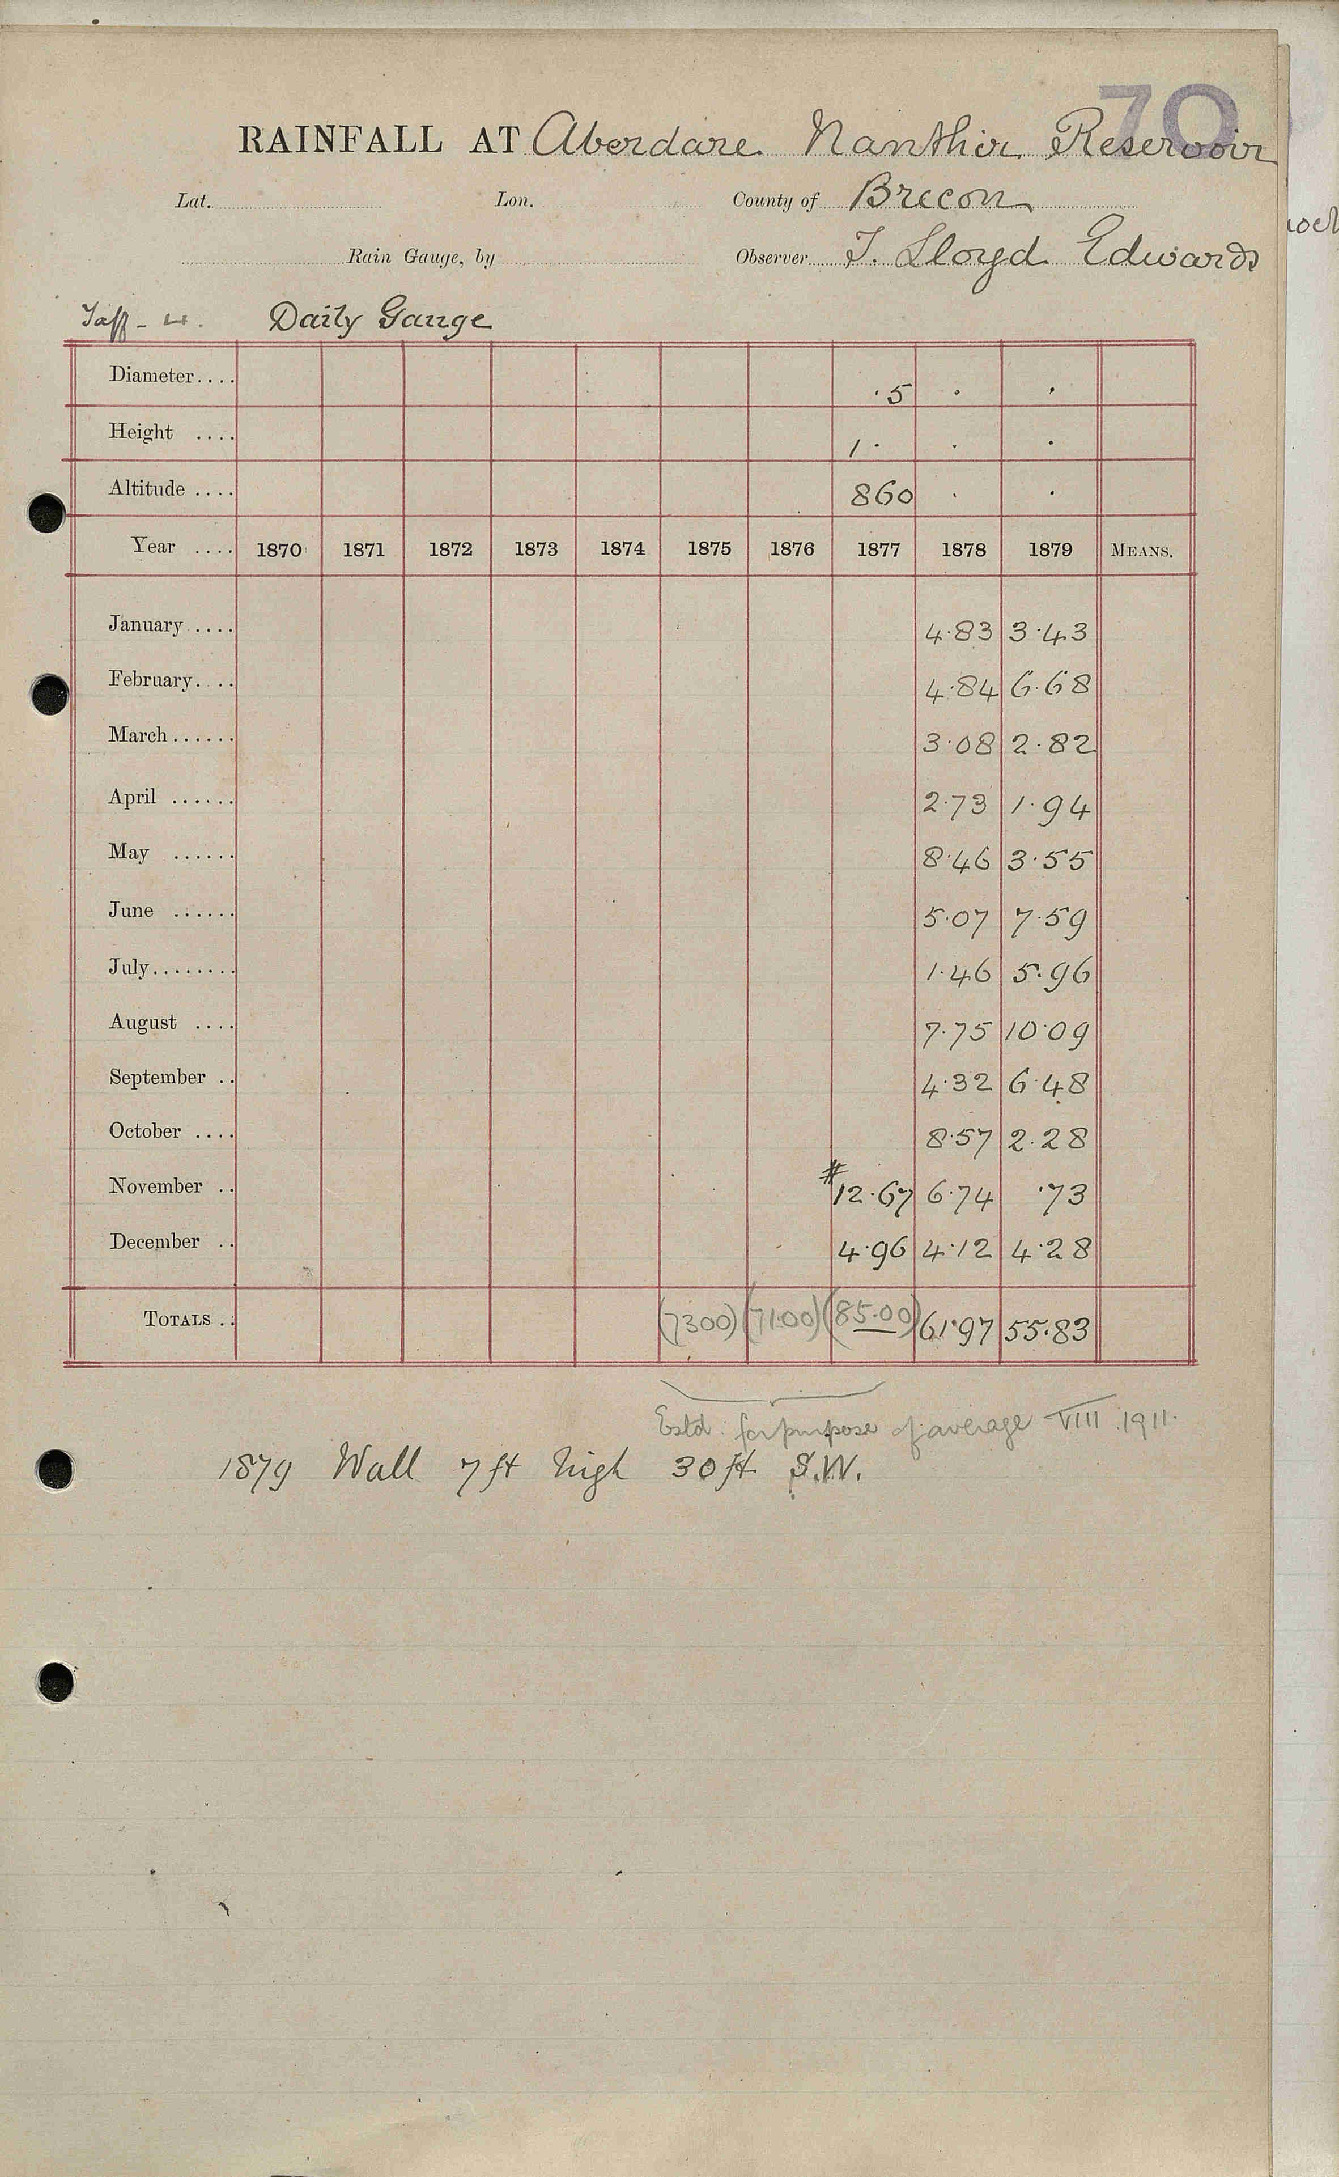 70
RAINFALL AT Aberdare Nanthir Reservoir
Lat. Lon. County of Brecon
Rain Gauge, by Observer T. Lloyd Edwards
Taff - 4. Daily Gauge
Diameter.... ·5 · ·
Height .... 1· · ·
Altitude .... 860 · ·
Year .... 1870 1871 1872 1873 1874 1875 1876 1877 1878 1879 MEANS.
January ..... 4·83 3·43
February.... 4·84 6·68
March...... 3·08 2·82
April ...... 2·73 1·94
May ...... 8·46 3·55
June ...... 5·07 7·59
July........ 1·46 5·96
August .... 7·75 10·09
September .. 4·32 6·48
October .... 8·57 2·28
November .. #12·67 6·74 ·73
December .. 4·96 4·12 4·28
TOTALS .. (7300) (71·00) (85·00) 61·97 55·83
Estd. for purpose of average VIII 1911.
1879 Wall 7 ft high 30 ft S.W.